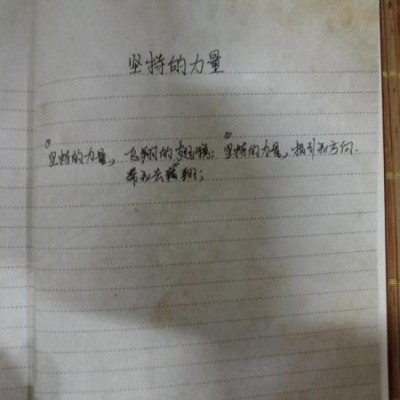 坚持的力量
坚持的力量，飞翔的翅膀；坚持的力量，指引和方向.
带我去翱翔；